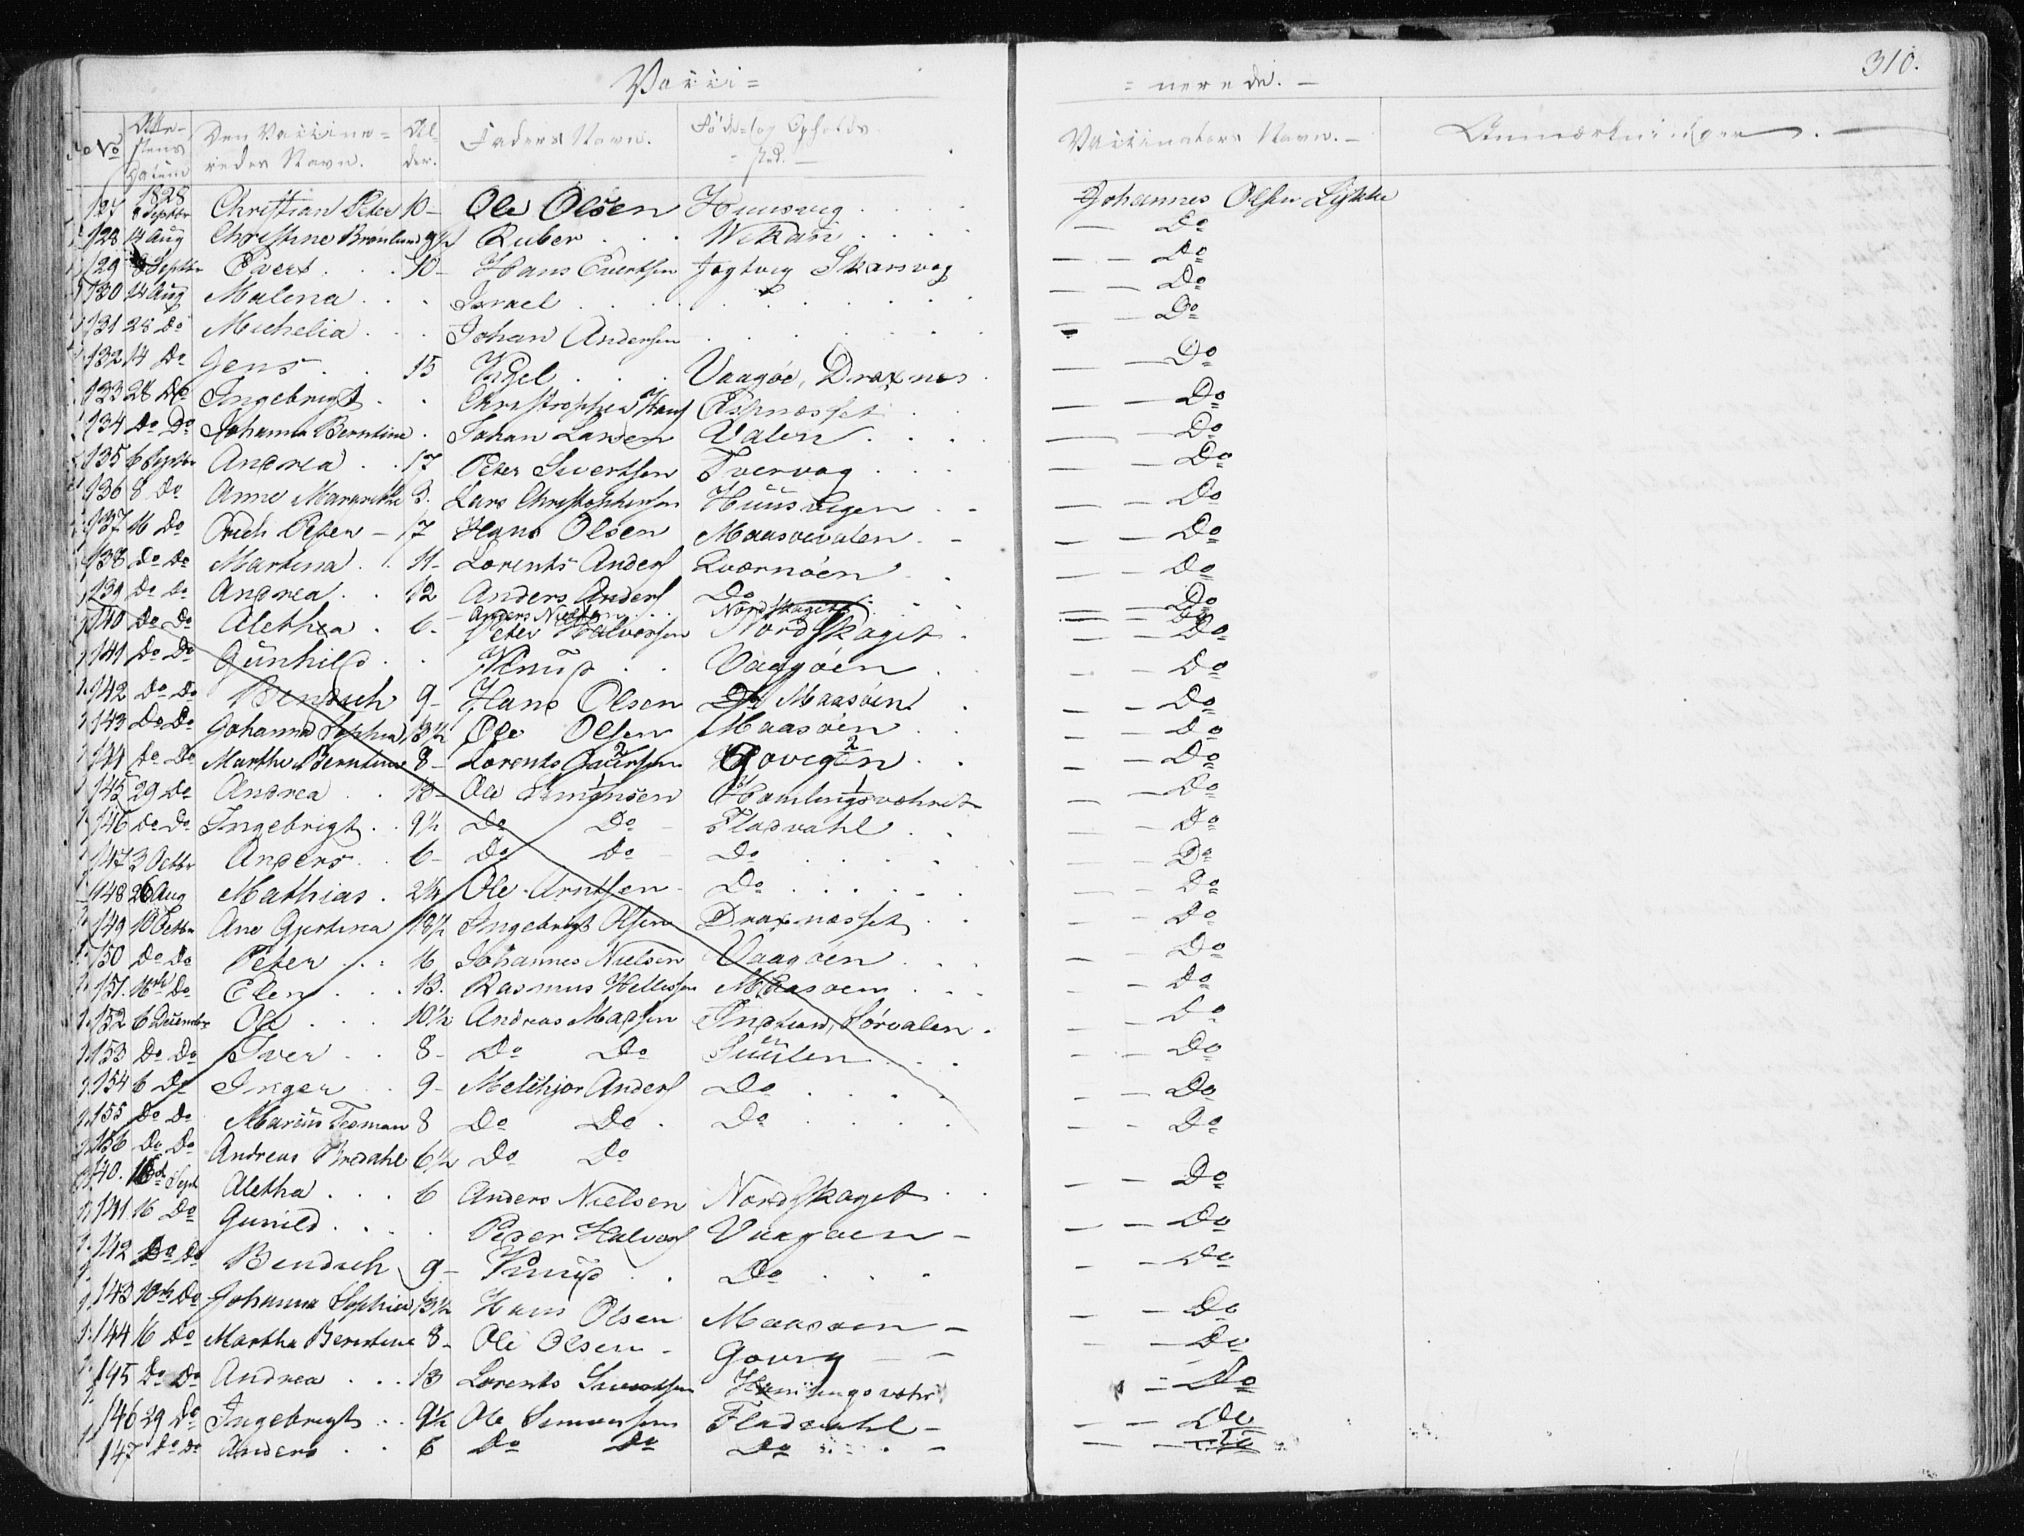 Vacci = = nerede. — 310.
No Atte-stens Datum Den Vaccine=redes Navn. Al-der. Faders Navn. Føde= og Opholds-sted. — Vaccinators Navn. — Anmærkninger. —
1828
127 8 Septbr Christian Peter 10 - Ole Olsen Huusvig . . . . Johannes Olsen Lykke
128 14 Aug Christine Brønlund 9½ Ruber . . . Wikan . . . . — Do
129 8 Septbr Evert . . . 10 - Hans Evertsen Jegtvig Skarsvag — — Do
130 14 Aug Malena . . . Israel . . . . — — Do
131 28 Do Michelia . . . Johan Andersen . . . . — — Do
132 14 Do Jens . . 15 Vigel . . . Vaagøe, Draxnes . — — Do
133 28 Do Ingebrigt . . Christopher Hans Espnæsset . . — — Do
134 Do Do Johanna Berntine . Johan Larsen Valen . . . — — Do
135 6 Septbr Andrea . . 17 Peter Sivertsen Tvervag . . . — — Do
136 8 Do Anne Margrethe 3. Lars Christophersen Huusvigen . - — — Do
137 16 Do Erich Peter - 17 Hans Olsen Maasøevalen . - — — Do
138 Do Do Martina . . 11 - Lorents Anders Kværnøen . . — — Do
139 Do Do Andrea . . 12 Anders Anders Do . . . — — Do
Anders Nielsen . . Nordskaget — — Do
140 Do Do Aletha . 6 - Peter Halvorsen Nordskaget . — — Do
141 Do Do Gunhild . . Knud . . Vaagøen . — — Do
142 Do Do Bendich 9 - Hans Olsen Do Maasøen . — — Do
143 Do Do Johanna Sophia 13½ Ole Olsen Maasøen . . — — Do
144 Do Do Martha Berntine 8 - Lorents Sivertsen Govigen . . — — Do
145 29 Do Andrea . . 13 - Ole Simonsen Hamlingsvæhret — — Do
146 Do Do Ingebrigt . . 9½ Do Do - Fladvahl . . — — Do
147 3 Octbr Anders . . 6 - Do Do - Do . . . . — — Do
148 26 Aug Mathias . 2¼ Ole Arntsen - Do . . . . — — Do
149 10 Octbr Ane Gjertina 10½ Ingebrigt Olsen Draxnæsset . . — — Do
150 Do Do Peter . . . 16 Johannes Nielsen Vaagøen . . . — — Do
151. 16de Do Elen . . . 13. Rasmus Hellesen Maasøen . . . — — Do
152 6 December Ole . . . 10½ Andreas Madsen Indland, Sørvalen . — — Do
153 Do Do Iver . . 8 - Do Do Suulen . . . — — Do
154 6 Do Inger . . 9 - Melchjor Anders Do . . . . — — Do
155 Do Do Marius Tesman 8 Do Do . Do . . . . — — Do
156 Do Do Andreas Bredahl 6½ Do Do
140. 16de Sept Aletha . . . 6 Anders Nielsen Nordskaget . . — — Do
141 16 Do Gunild . . . Peder Halvors Vaagøen — — — Do
142 Do Do Bendich 9 - Knud . . Do . . . — — Do
143 10de Do Johanna Sophia 13½ Hans Olsen Maasøen — — — Do
144 16 Do Martha Berntine 8 - Ole Olsen - Govig — — — Do
145 Do Do Andrea . . . 13 Lorents Sivertsen Hamlingsvæhr = Do
146 29 Do Ingebrigt . . 9½ Ole Simonsen Fladvahl — — — Do
147 Do Do Anders . . 6 Do Do Do . . . — — — Do